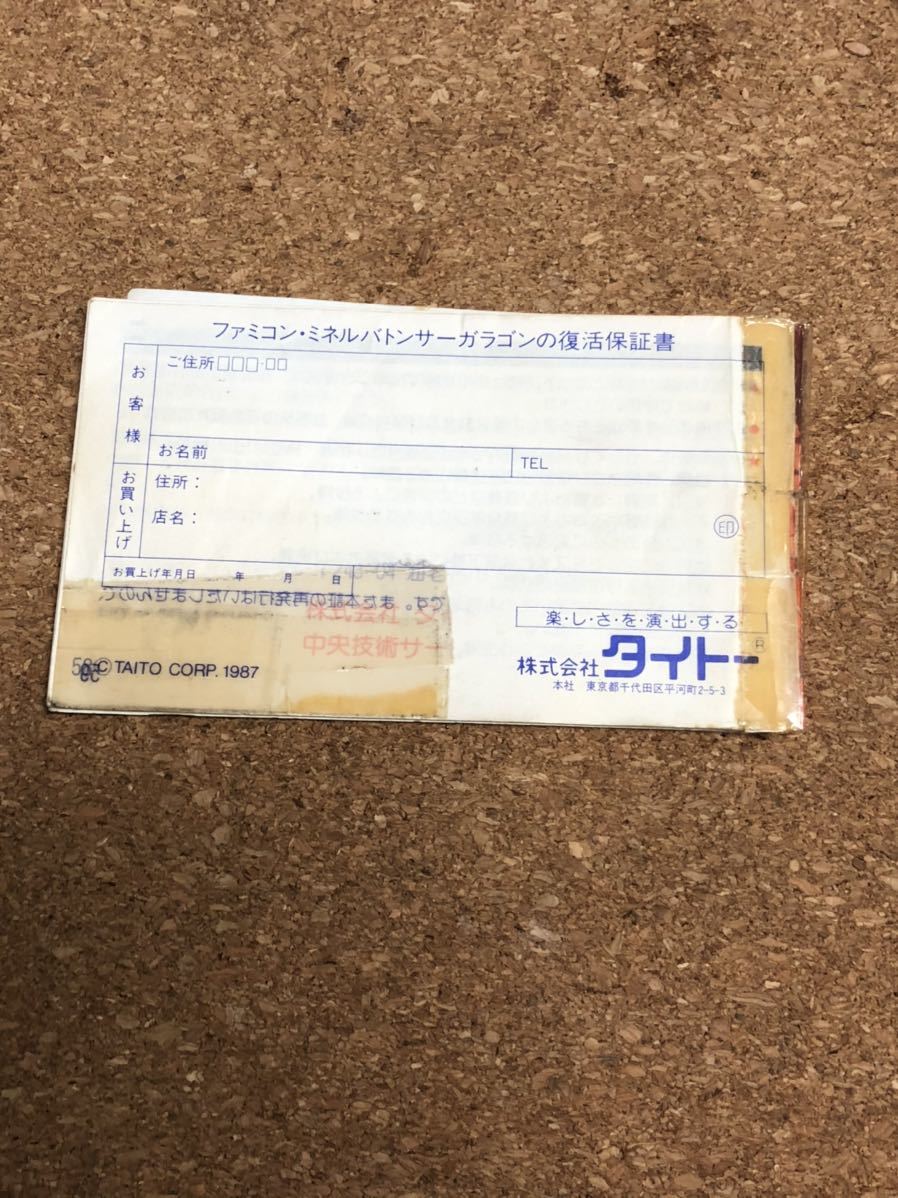 ファミコン・ミネルバトンサーガラゴンの復活保証書
お客様
ご住所□□□-□□
お名前
TEL
お買い上げ
住所：
店名：
印
お買上げ年月日　年　月　日
です。また本証の再発行はいたしませんので、
株式会社
中央技術サー
楽・し・さ・を・演・出・す・る
株式会社 タイトー ®
本社　東京都千代田区平河町2-5-3
©TAITO CORP. 1987